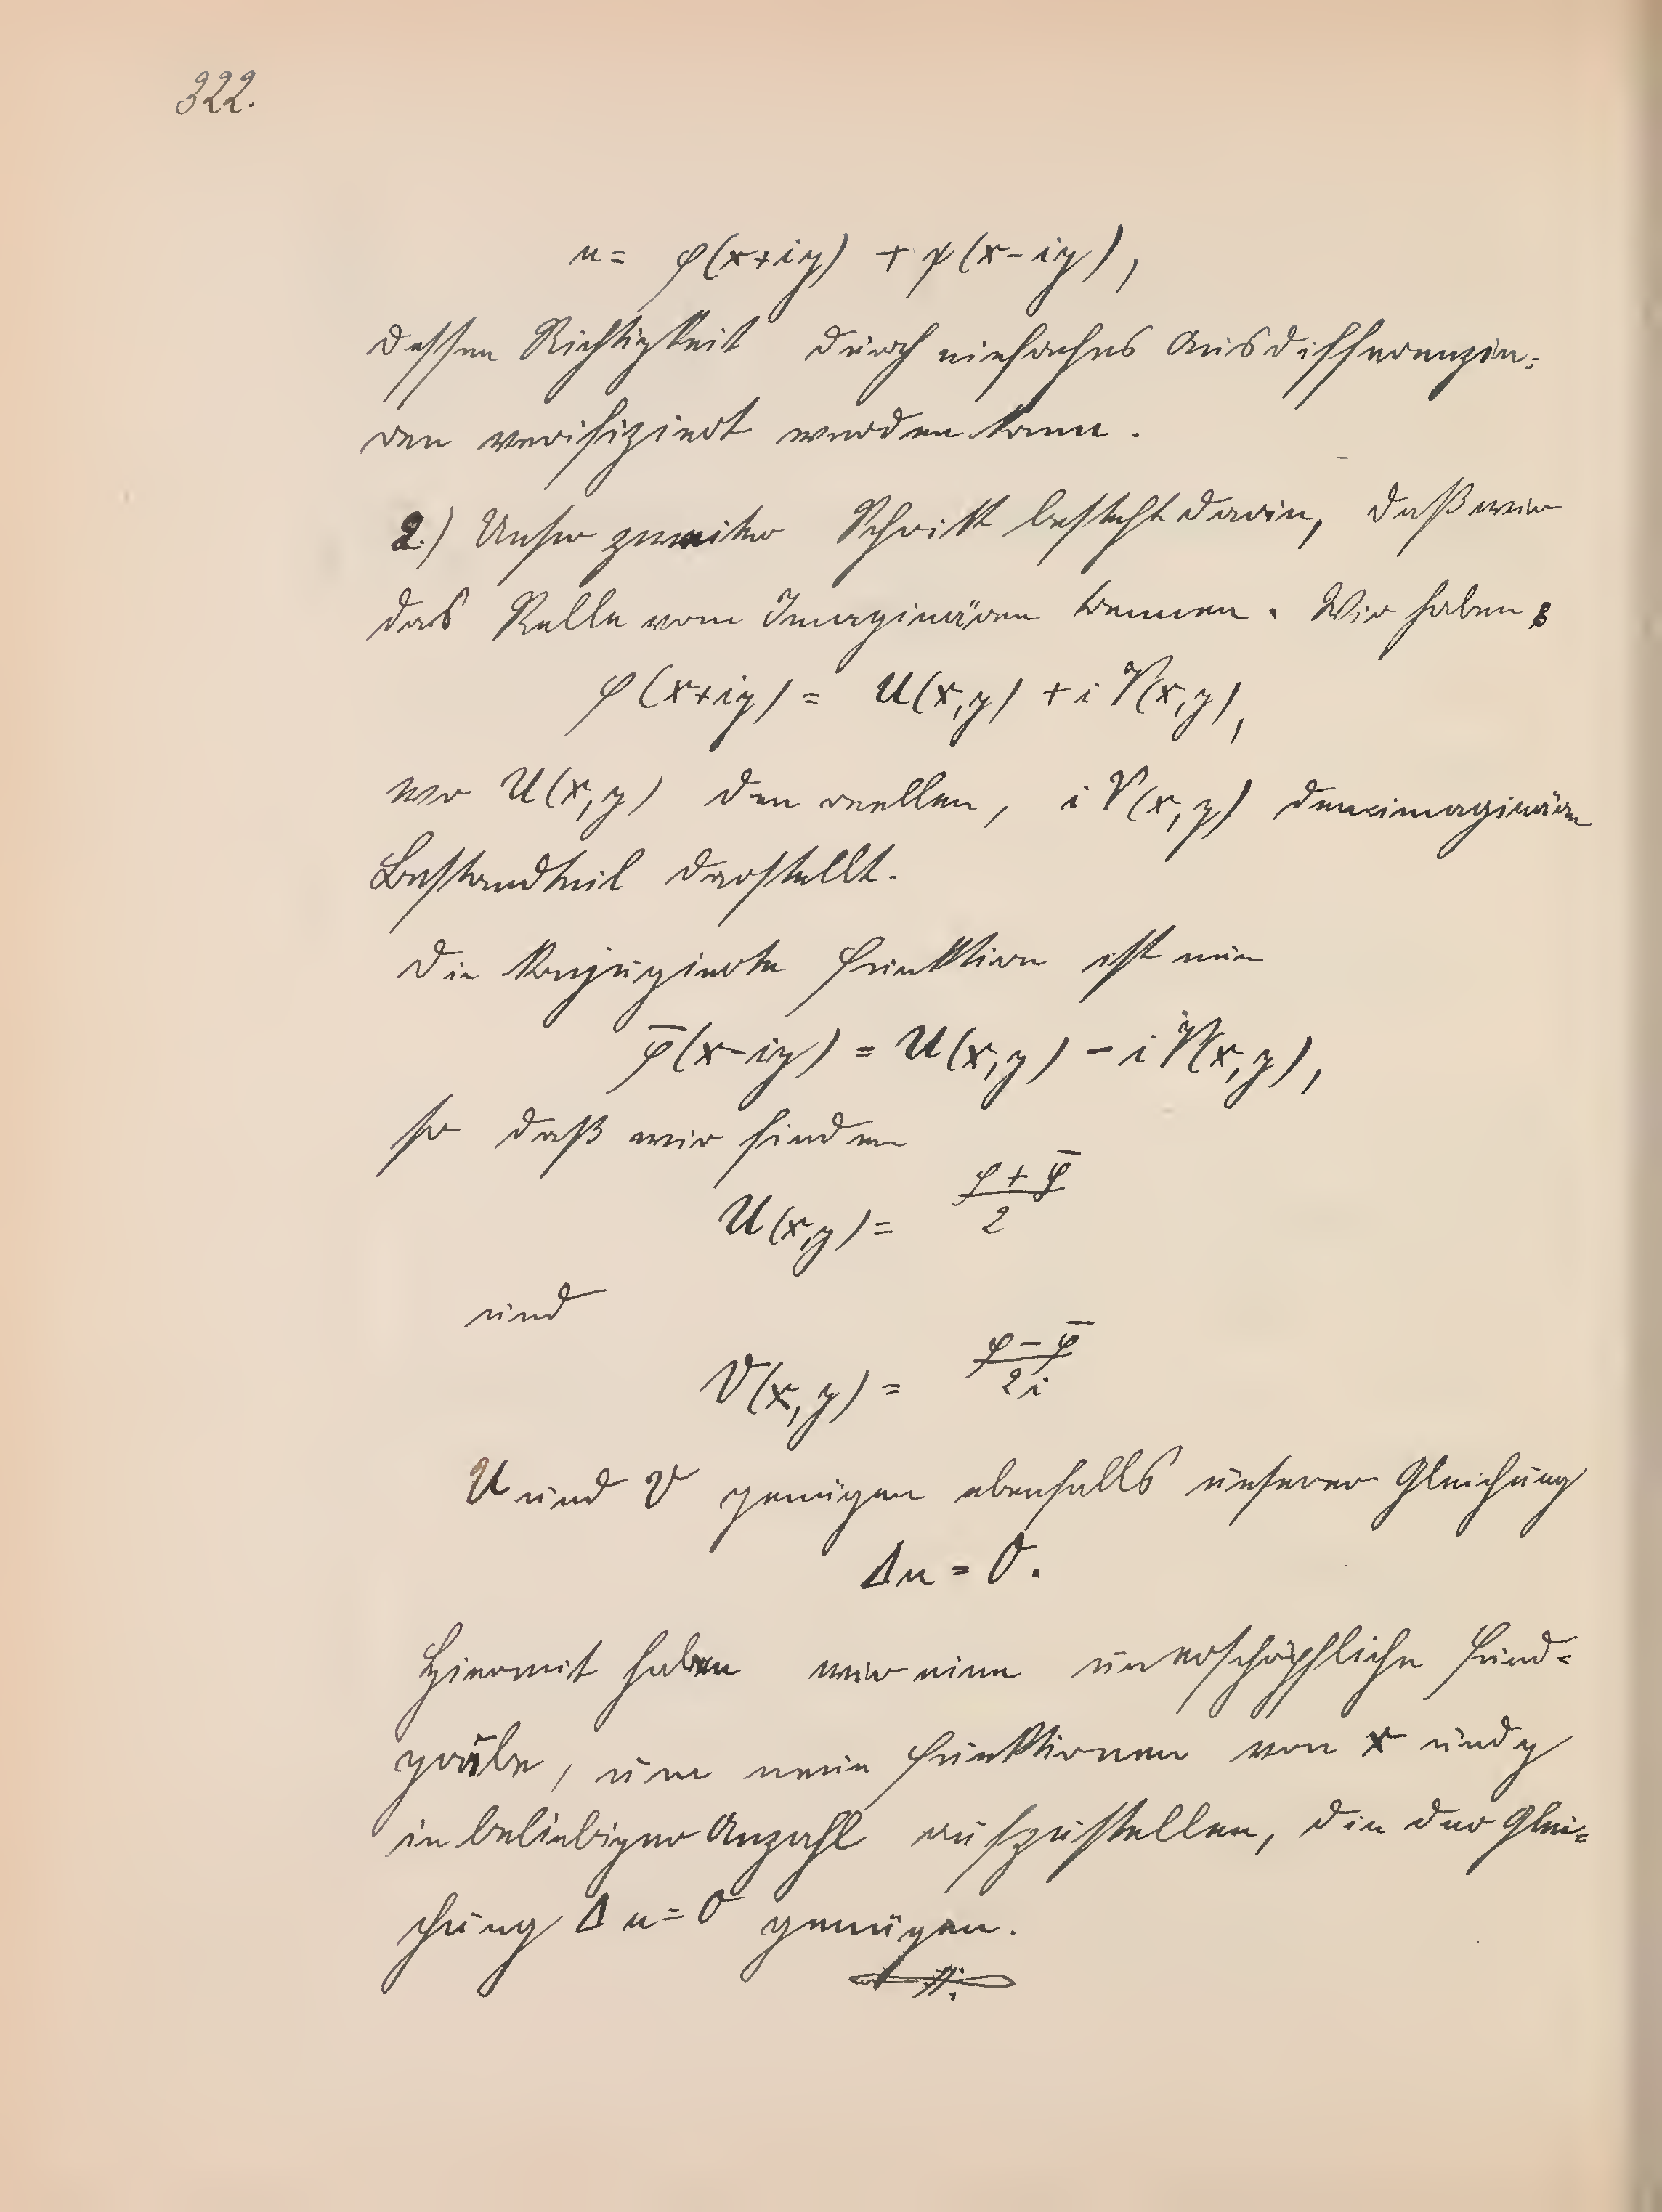 322.
u = φ(x+iy) + ψ(x-iy),
dessen Richtigkeit durch einfaches Ausdifferenzie=
ren verifiziert werden kann.
2.) Unser zweiter Schritt besteht darin, daß wir
das Reelle vom Imaginären trennen. Wir haben:
φ(x+iy) = U(x,y) + i V(x,y),
wo U(x,y) den reellen, i V(x,y) den imaginären
Bestandteil darstellt.
Die konjugierte Funktion ist nun
φ̄(x-iy) = U(x,y) - i V(x,y),
so daß wir finden
U(x,y) = (φ + φ̄)/2
und
V(x,y) = (φ - φ̄)/2i
U und V genügen ebenfalls unserer Gleichung
Δu = 0.
Hiermit haben wir eine unerschöpfliche Fund=
grube, um neue Funktionen von x und y
in beliebiger Anzahl aufzustellen, die der Glei=
chung Δu = 0 genügen.